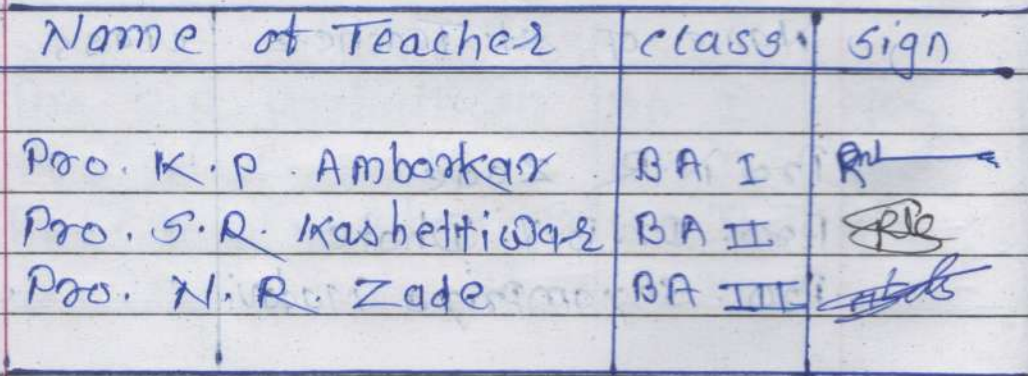 Name of Teacher class. Sign
Pro. K. P. Amborkar BA I
Pro. S. R. Kashettiwar BA II
Pro. N. R. Zade BA III